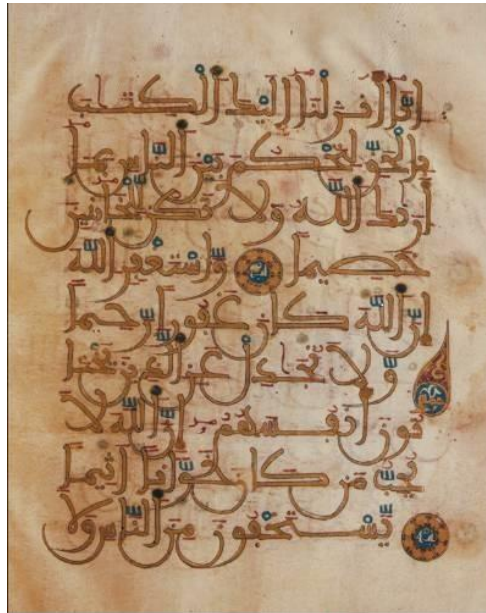 إنّا أنزلنا إليك الكتب
بالحقّ لتحكم بين النّاس بما
أريك اللّه ولا تكن للخائنين
خصيما واستغفر اللّه
إنّ اللّه كان غفورا رحيما
ولا تجدل عن الذين يختا
نون أنفسهم إنّ اللّه لا
يحبّ من كان خوّانا أثيما
يستخفون من النّاس ولا